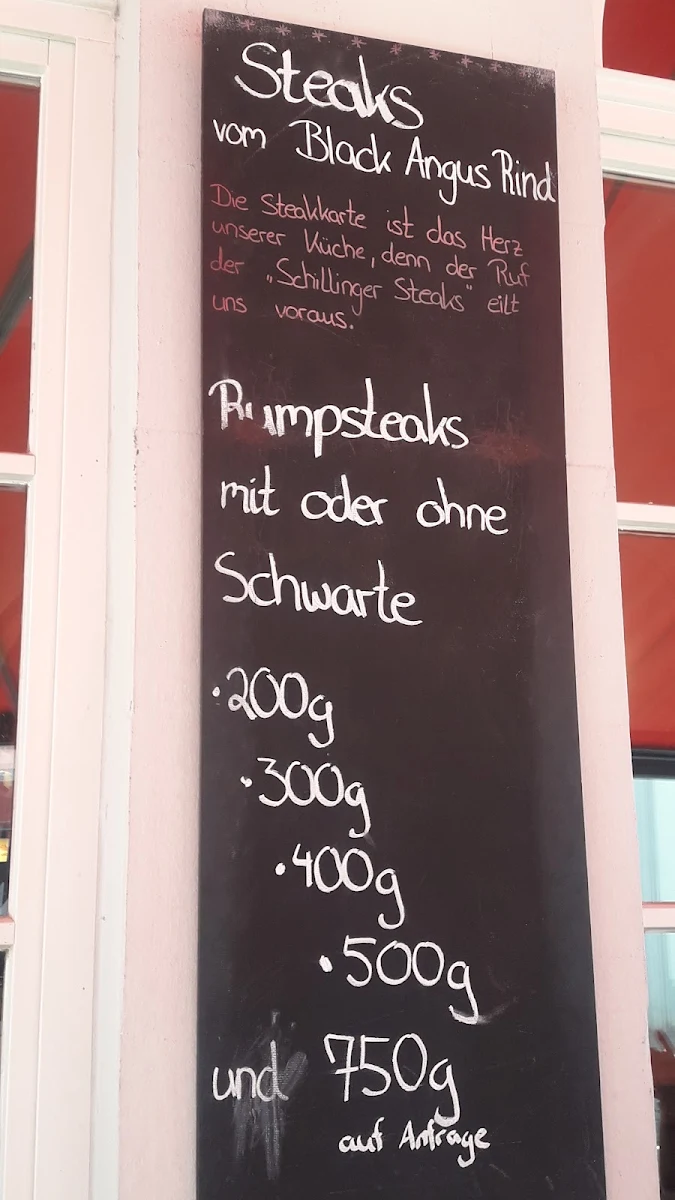 Steaks
vom Black Angus Rind
Die Steakkarte ist das Herz
unserer Küche, denn der Ruf
der „Schillinger Steaks" eilt
uns voraus.
Rumpsteaks
mit oder ohne
Schwarte
·200g
·300g
·400g
·500g
und 750g
auf Anfrage